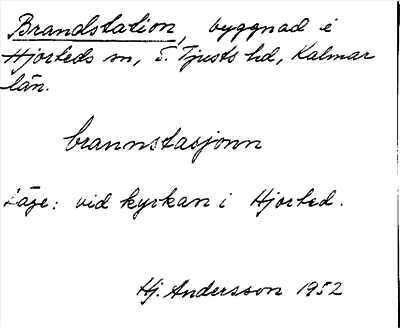 Brandstation, byggnad i
Hjorteds sn, S. Tjusts hd, Kalmar
län.
brannstasjonn
Läge: vid kyrkan i Hjorted.
Hj. Andersson 1952